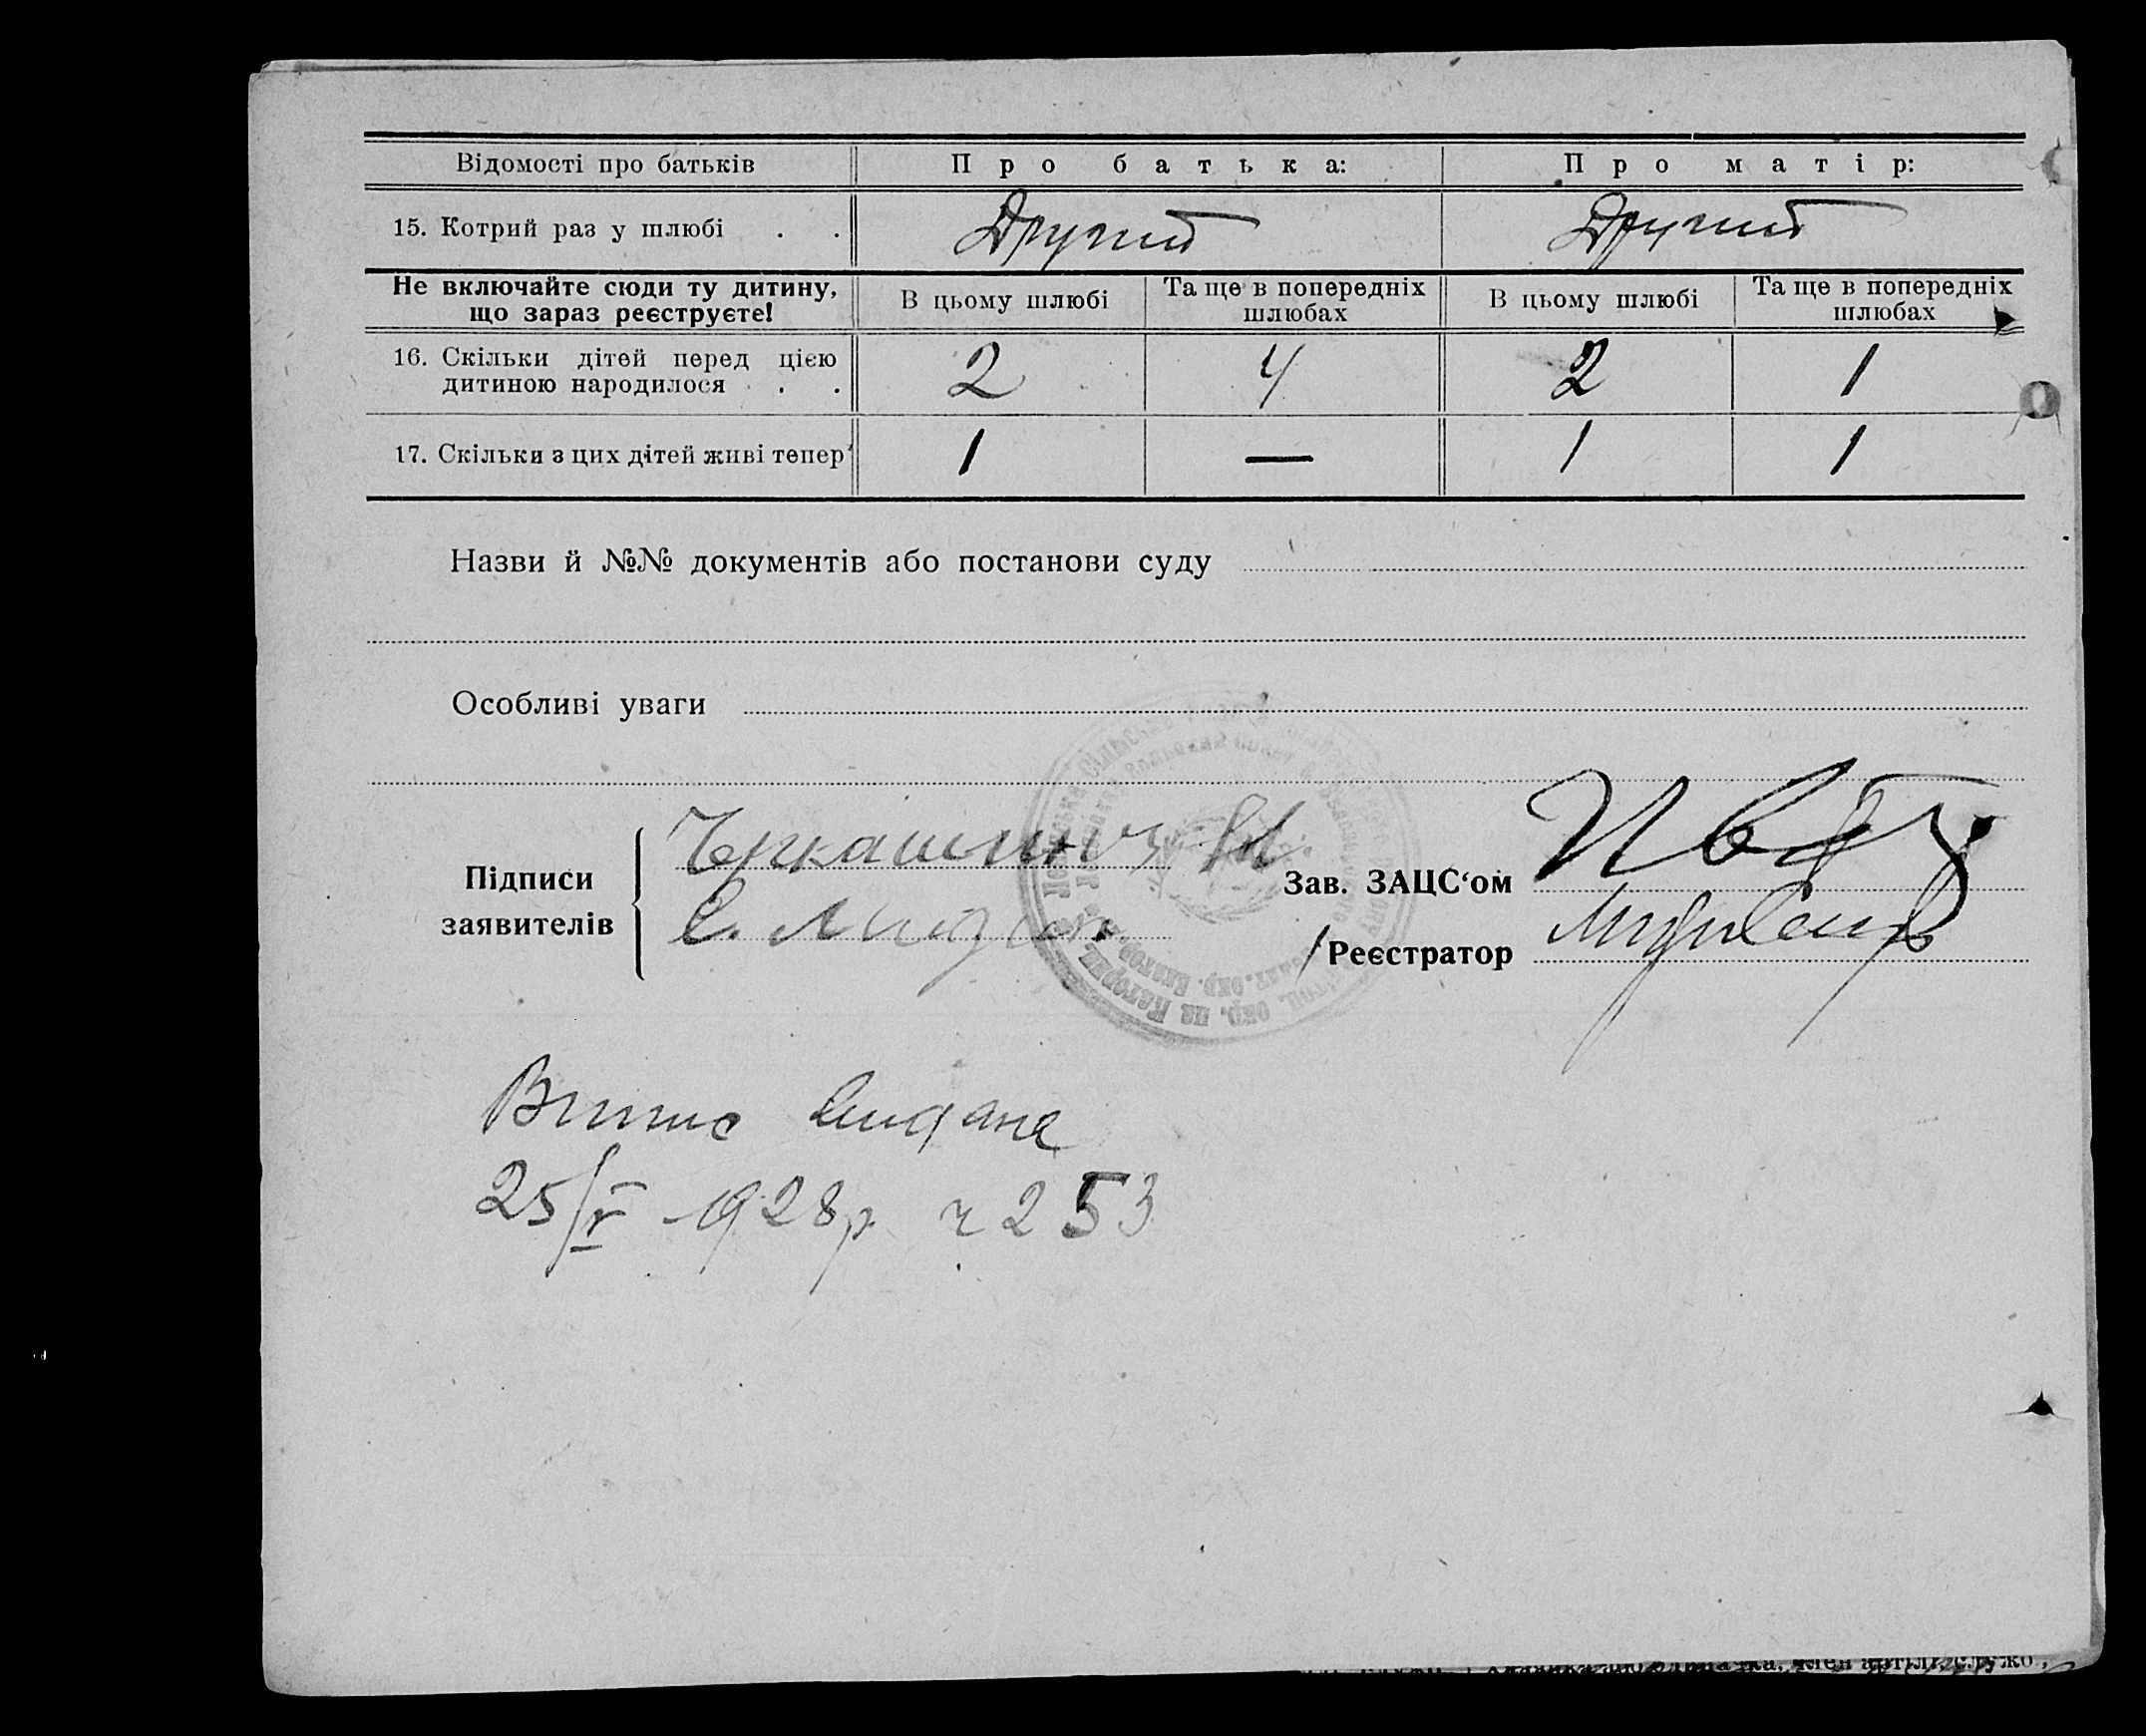 Відомості про батьків Про батька: Про матір:
15. Котрий раз у шлюбі . . Другий Другий
Не включайте сюди ту дитину, що зараз реєструєте! В цьому шлюбі Та ще в попередніх шлюбах В цьому шлюбі Та ще в попередніх шлюбах
16. Скільки дітей перед цією дитиною народилося . . 2 4 2 1
17. Скільки з цих дітей живі тепер 1 — 1 1
Назви й №№ документів або постанови суду
Особливі уваги
Підписи заявителів
Зав. ЗАЦС‘ом
Реєстратор
Випис видане
25/V 1928р ч 253
член артілі, служо